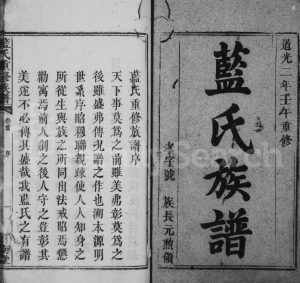 道光二年壬午重修
藍氏族譜
孝字號 族長元勲領
藍氏重修族譜序
天下事莫為之前雖美弗彰莫為之
後雖盛弗傳況譜之作也溯本源明
世系序昭穆聯親疎使人人知身之
所從生與族之所同出法戒昭焉懲
勸寓焉前人創之後人守之豈彰其
美遂不必傳其盛哉我藍氏之有譜
藍氏重修族譜 卷首 序